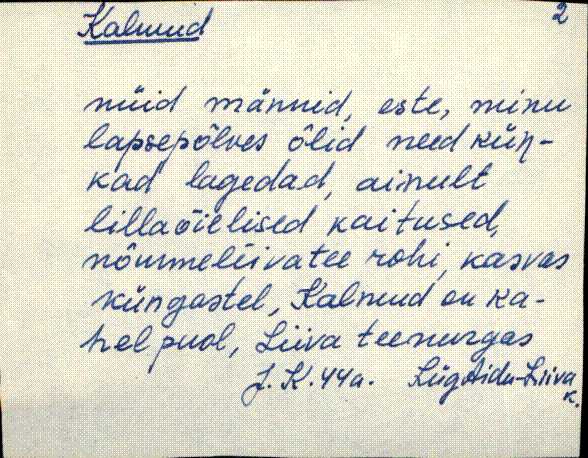 2
Kalmud
nüid männid, este, minu
lapsepõlves õlid need kün-
kad lagedad, ainult
lillaõielised kaitused,
nõmmeliivatee rohi, kasvas
küngastel, Kalmud on ka-
hel puol, Liiva teenurgas
J. K. 44a. Lüg Aidu-Liiva
k.